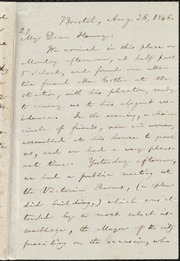 Bristol, Aug. 26, 1846.
My Dear Henry:
We arrived in this place on
Monday afternoon, at half past
5 o'clock, and found our atten-
tive friend Mr. Estlin at the
station, with his phaeton, ready
to convey us to his elegant res-
idence. In the evening, a choice
circle of friends, men and women,
assembled at his house to greet
us, and we had a very pleas-
ant time. Yesterday afternoon,
we had a public meeting at
the Victoria Rooms, (a splen-
did building,) which was at-
tended by a most select as-
semblage, the Mayor of the city
presiding on the occasion, who